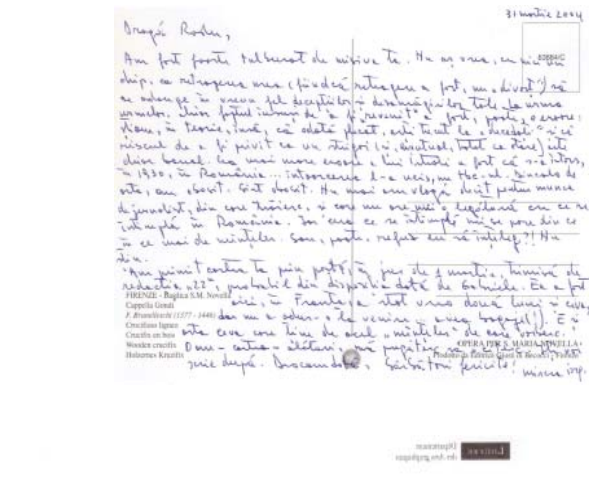 31 martie 2004
Dragă Rodu,
60884/C
Am fost foarte tulburat de misiva ta. Nu aș vrea, cu nici un
chip, ca retragerea mea (fiindcă retragere a fost, nu „divorț”) să
se adauge în vreun fel decepțiilor și dezamăgirilor tale. La urma
urmelor, chiar faptul însuși de a fi „revenit” a fost, poate, o eroare:
știam, în teorie, însă, că odată plecat, ești trecut la „decedați” și că
riscul de a fi privit ca un strigoi (și, eventual, tratat ca atare) este
chiar banal. Cea mai mare eroare a lui Istrati a fost că s-a întors,
în 1930, în România... întoarcerea l-a ucis, nu tbc-ul. Dincolo de
asta, am obosit. Sînt obosit. Nu mai am vlagă decît pentru munca
de jurnalist, din care trăiesc, și care nu are nici o legătură cu ce se
întîmplă în România. Iar ceea ce se întîmplă mi se pare din ce
în ce mai de neînțeles. Sau, poate, refuz eu să înțeleg?! Nu
știu.
Am primit cartea ta prin poștă, în jur de 1 martie, trimisă de
redacția „22”, probabil din dispoziția dată de Gabriela. Ea a fost
aici, în Franța, a stat vreo două luni și ceva,
dar nu a adus-o la venire – avea bagaje(!). E și
asta ceva care ține de acel „neînțeles” de care vorbesc.
O am – cartea – alături, mă pregătesc să o citesc
scrie după. Deocamdată, Sărbători fericite! mircea iorg.
FIRENZE - Basilica S.M. Novella
Cappella Gondi
F. Brunelleschi (1377 - 1446)
Crocifisso ligneo
Crucifix en bois
Wooden crucifix
Holzernes Kruzifix
OPERA PER S. MARIA NOVELLA
Département
des Arts graphiques